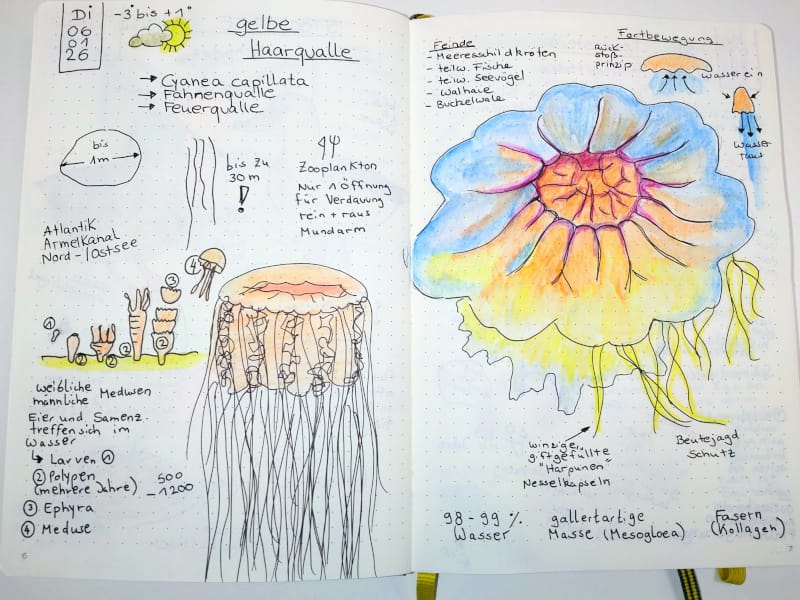 Di
06
01
26
-3° bis +1°
gelbe
Haarqualle
→ Cyanea capillata
→ Fahnenqualle
→ Feuerqualle
bis
1m
bis zu
30m
!
Zooplankton
Nur 1 Öffnung
für Verdauung
rein + raus
Mundarm
Atlantik
Ärmelkanal
Nord-/Ostsee
①
②
②
②
②
③
④
weibliche
männliche Medusen
Eier und Samenz.
treffen sich im
Wasser
↳ Larven ①
② Polypen
(mehrere Jahre)
500
-1200
③ Ephyra
④ Meduse
6
Feinde
- Meeresschildkröten
- teilw. Fische
- teilw. Seevögel
- Walhaie
- Buckelwale
Fortbewegung
Rück-
stoß-
prinzip
Wasser ein
Wasser
raus
winzige,
giftgefüllte
"Harpunen"
Nesselkapseln
Beutejagd
Schutz
98-99 %
Wasser
gallertartige
Masse (Mesogloea)
Fasern
(Kollagen)
7